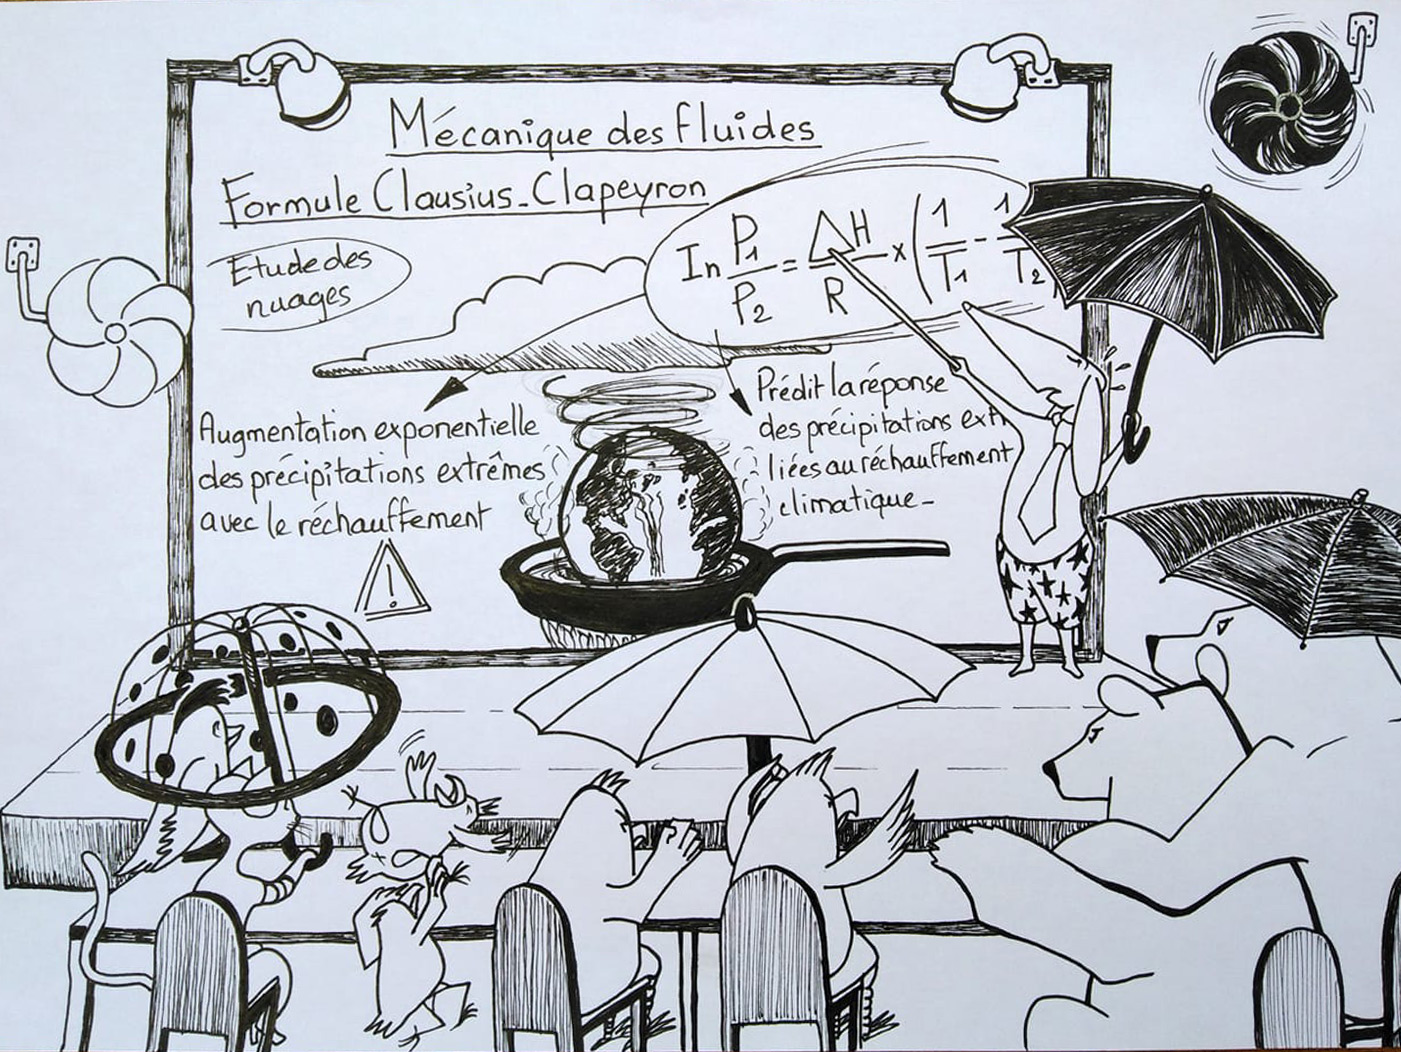 Mécanique des fluides
Formule Clausius-Clapeyron
Etude des
nuages
ln P1/P2 = ΔH/R × (1/T1 - 1/T2)
Augmentation exponentielle
des précipitations extrêmes
avec le réchauffement
!
Prédit la réponse
des précipitations extr
liées au réchauffement
climatique-